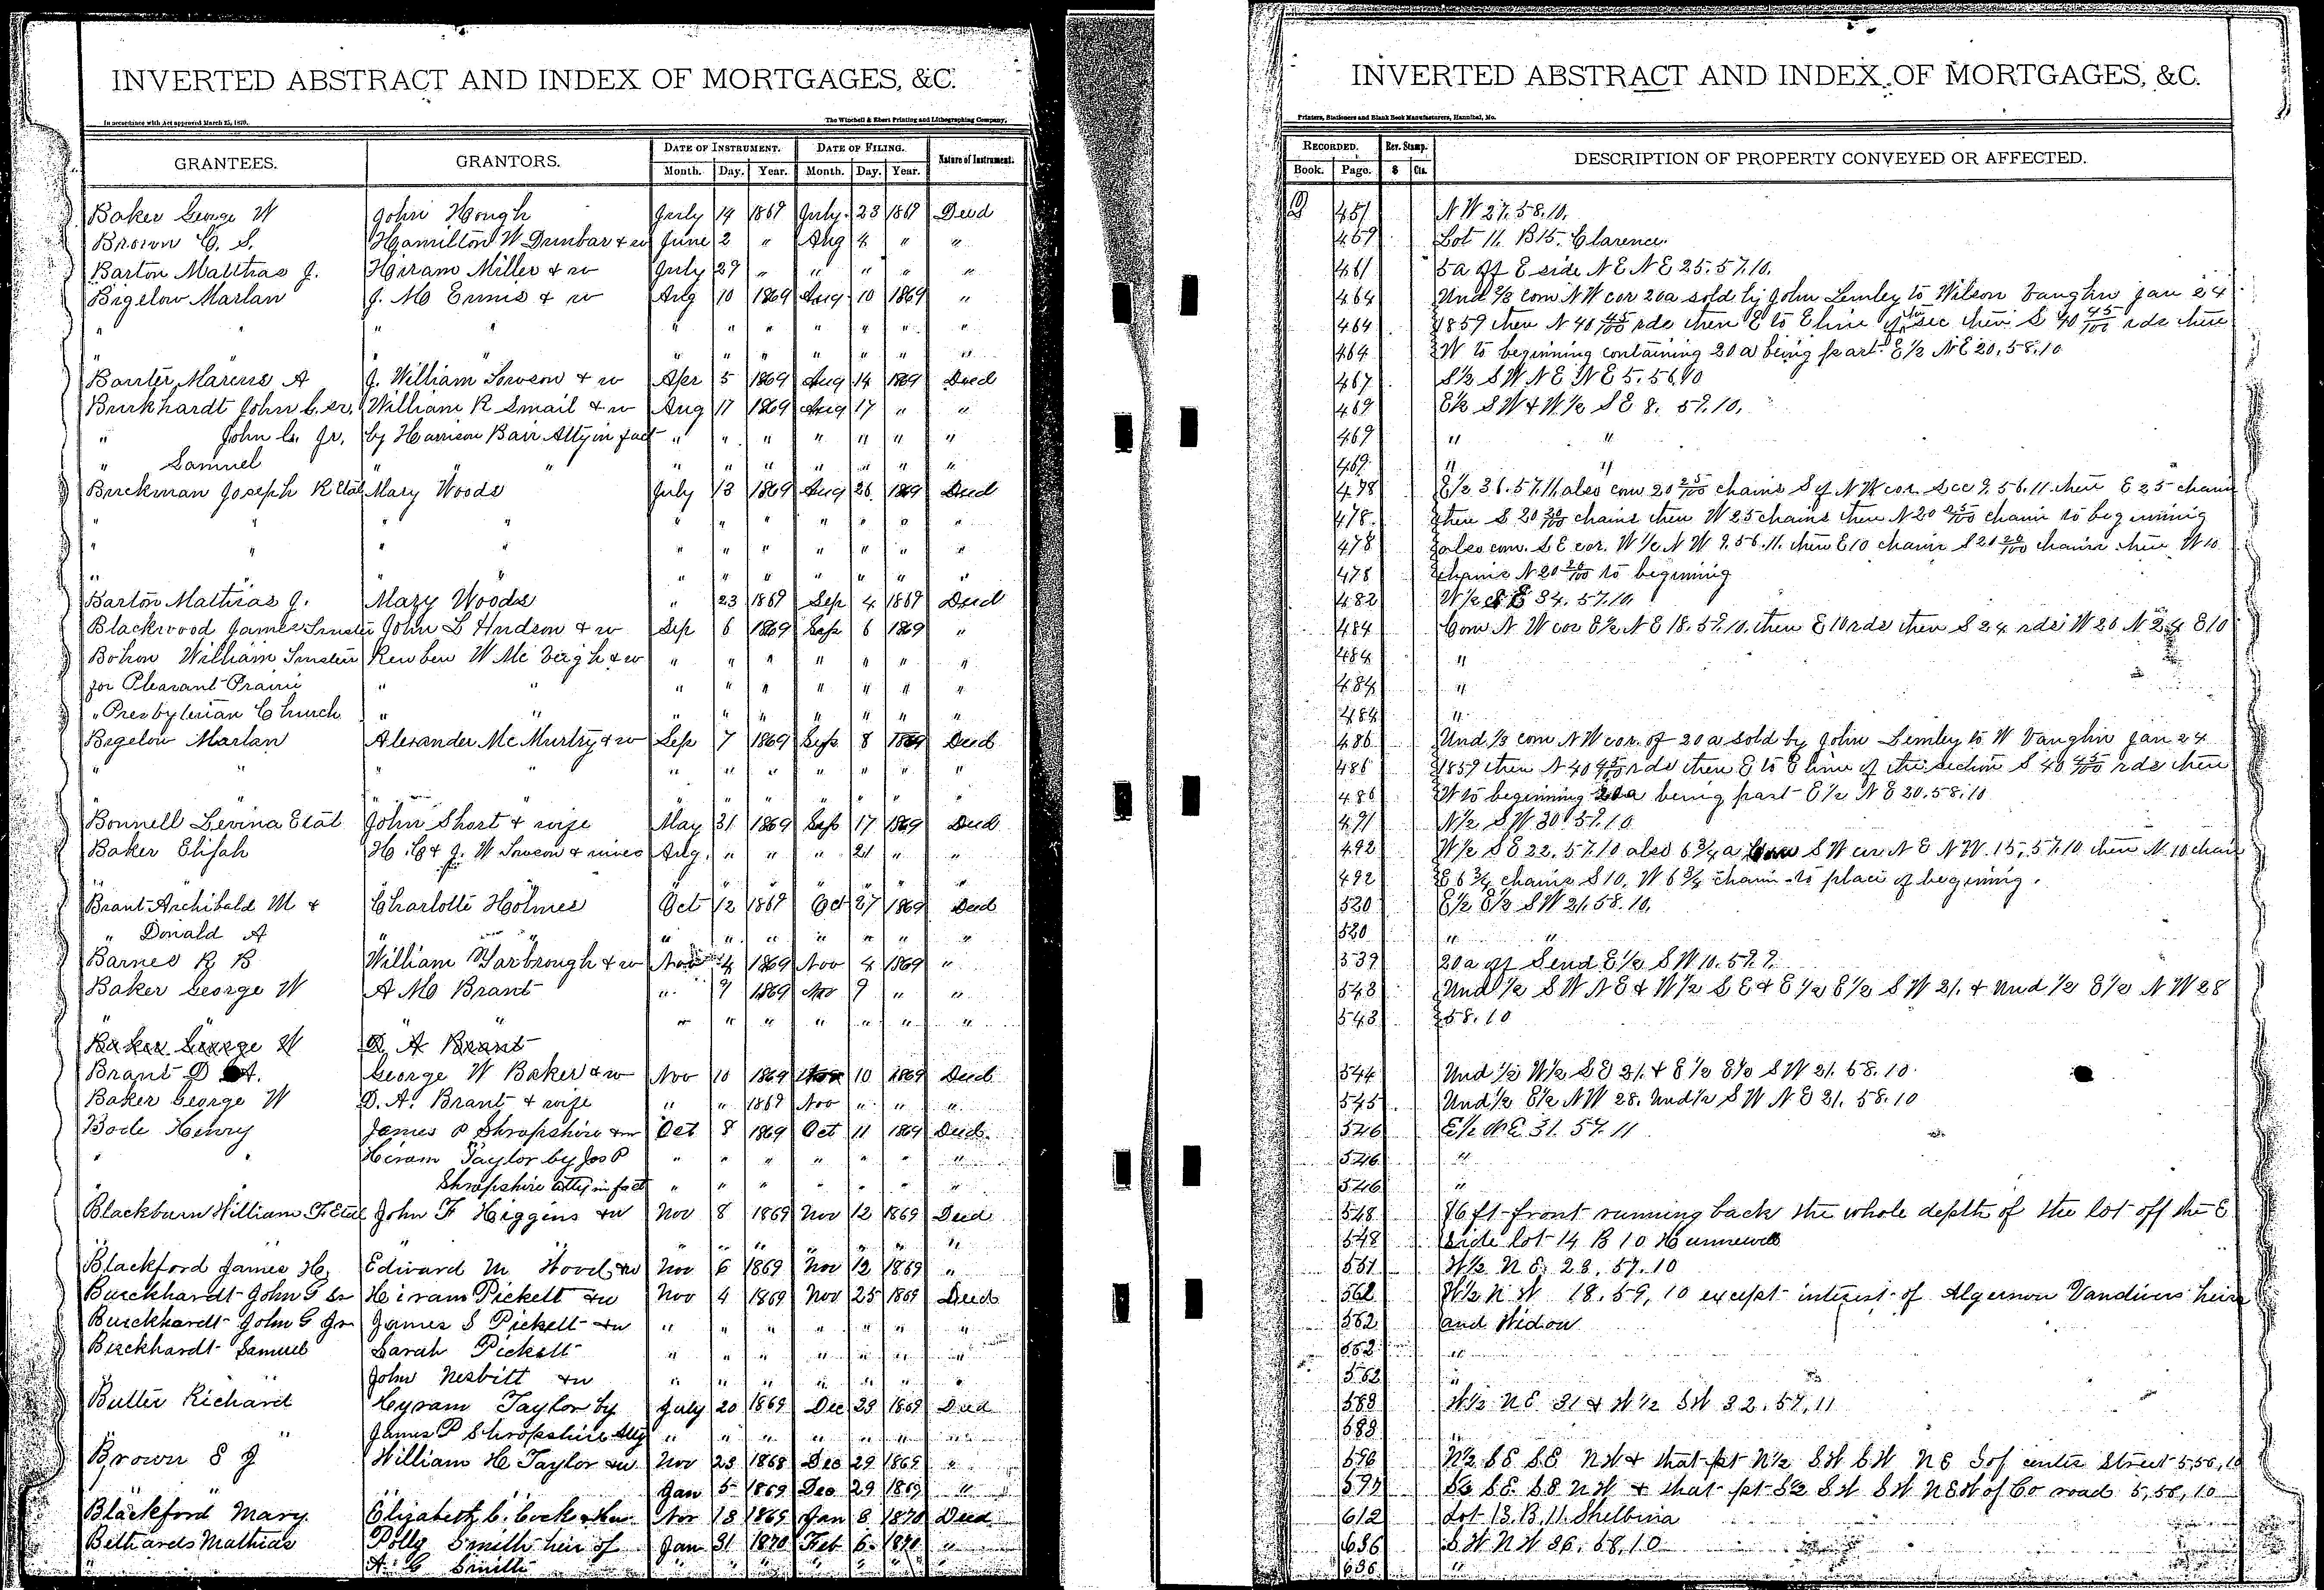 INVERTED ABSTRACT AND INDEX OF MORTGAGES, &C.
In accordance with Act approved March 25, 1870.
The Winchell & Ebert Printing and Lithographing Company,
GRANTEES. GRANTORS. DATE OF INSTRUMENT. DATE OF FILING. Nature of Instrument.
Month. Day. Year. Month. Day. Year.
Baker George W John Hough July 14 1869 July 23 1869 Deed
Brown C. S. Hamilton W Dunbar & w June 2 " Aug 4 " "
Barton Matthias J. Hiram Miller & w July 29 " " " " "
Bigelow Marlan J. M Ennis & w Aug 10 1869 Aug 10 1869 "
" " " " " " " " " " "
" " " " " " "
Marcus A J. William Towson & w Apr 5 1869 Aug 14 1869 Deed
Burkhardt John G. Sr. William R Smail & w Aug 17 1869 Aug 17 " "
" John G. Jr. by Harrison Bair Atty in fact " " " " " " "
" Samuel " " " " " " " " " "
Buckman Joseph R Etal Mary Woods July 13 1869 Aug 26 1869 Deed
" " " " " " " " " " "
" " " " " " " " " " "
" " " " " " "
Barton Mathias J. Mary Woods " 23 1869 Sep 4 1869 Deed
Blackwood James Trustee John L Hudson & w Sep 6 1869 Sep 6 1869 "
Bohon William Trustee Reuben W Mc Veigh & w " " " " " " "
for Pleasant Prairie " " " " " " " " "
" Presbyterian Church " " " " " " " " "
Bigelow Marlan Alexander McMurtry & w Sep 7 1869 Sep 8 1869 Deed
" " " " " " " " " " "
" " " " " " " " "
Bonnell Levina Etal John Short & wife May 31 1869 Sep 17 1869 Deed
Baker Elijah H. C & J. W Towson & wives Aug. " " " 21 " "
" " " " " " " " "
Brant Archibald M & Charlotte Holmes Oct 12 1869 Oct 27 1869 Deed
" Donald A " " " " " " " " "
Barnes R B William Yarbrough & w Nov 4 1869 Nov 4 1869 "
Baker George W A M Brant " 9 1869 Nov 9 " "
" " " " " " " " " "
Baker George W D A Brant
Brant D A. George W Baker & w Nov 10 1869 Nov 10 1869 Deed
Baker George W D. A. Brant & wife " " 1869 Nov " " "
Bode Henry James P Shropshire & w Oct 8 1869 Oct 11 1869 Deed
" " Hiram Taylor by Jos P " " " " " " "
" Shropshire atty in fact " " " " " " "
Blackburn William F Etal John F Higgins & w Nov 8 1869 Nov 12 1869 Deed
" " " " " " " " "
Blackford James H. Edward M Hood & w Nov 6 1869 Nov 12 1869 "
Burckhardt John G Sr Hiram Pickett & w Nov 4 1869 Nov 25 1869 Deed
Burckhardt John G Jr James S Pickett & w " " " " " " "
Burckhardt Samuel Sarah Pickett " " " " " " "
" " John Nesbitt & w " " " " " " "
Butler Richard Hyram Taylor by July 20 1869 Dec 23 1869 Deed
" James P Shropshire Atty " " " " " " "
Brown S J William H Taylor & w Nov 23 1868 Dec 29 1869 "
" " " " Jan 5 1869 Dec 29 1869 "
Blackford Mary Elizabeth C. Cock Nov 18 1869 Jan 8 1870 Deed
Bethards Mathias Polly Smith heir of Jan 31 1870 Feb 6 1870 "
A. C Smith " " " " " " "
INVERTED ABSTRACT AND INDEX OF MORTGAGES, &C.
Printers, Stationers and Blank Book Manufacturers, Hannibal, Mo.
RECORDED. Rev. Stamp. DESCRIPTION OF PROPERTY CONVEYED OR AFFECTED.
Book. Page. $ Cts.
451 NW 27. 58. 10.
459 Lot 11. B15. Clarence.
461 5a off E side N E N E 25. 57. 10.
464 Und 2/3 com N W cor 20a sold by John Lemley to Wilson Vaughn Jan 24
464 1859 then N 40 45/100 rds then E to E line of sec then S 40 45/100 rds then
464 W to beginning containing 20 a being part E 1/2 N E 20. 58. 10
467 S 1/2 S W N E N E 5. 56. 10
469 E 1/2 S W & W 1/2 S E 8. 59. 10.
469 " "
469 " "
478 E 1/2 36. 57. 11. also com 20 25/100 chains S of N W cor Sec 9. 56. 11. then E 25 chains
478 then S 20 20/100 chains then W 25 chains then N 20 25/100 chains to beginning
478 also com. S E cor. W 1/2 N W 9. 56. 11. then E 10 chains S 20 20/100 chains then W 10
478 chains N 20 20/100 to beginning
482 W 1/2 S E 34. 57. 10.
484 Com N W cor E 1/2 N E 18. 59. 10. then E 10 rds then S 24 rds W 20 N 24 E 10
484 "
484 "
484 "
486 Und 1/3 com N W cor. of 20 a sold by John Lemley to W Vaughn Jan 24
486 1859 then N 40 45/100 rds then E to E line of the section S 40 45/100 rds then
486 W to beginning 20a being part E 1/2 N E 20. 58. 10
491 N 1/2 S W 30. 57. 10
492 W 1/2 S E 22. 57. 10 also 6 3/4 a com S W cor N E N W. 15. 57. 10 then N. 10 chain
492 E 6 3/4 chains S 10, W 6 3/4 chain to place of beginning.
520 E 1/2 E 1/2 S W 21. 58. 10.
520 " "
539 20a off S end E 1/2 S W 10. 59. 9.
543 Und 1/2 S W N E & W 1/2 S E & E 1/2 E 1/2 S W 21. & Und 1/2 E 1/2 N W 28
543 58. 10
544 Und 1/2 W 1/2 S E 21. & E 1/2 E 1/2 S W 21. 58. 10.
545 Und 1/2 E 1/2 N W 28. Und 1/2 S W N E 21. 58. 10
546 E 1/2 N E 31. 57. 11
546 "
546 "
548 86 ft front running back the whole depth of the lot off the E
548 side lot 14 B 10 Hunnewell
551 W 1/2 N E. 28. 57. 10
562 W 1/2 N W 18. 59, 10 except interest of Algernon Vandivers heirs
562 and Widow
562 "
562 "
588 W 1/2 N E 31 & W 1/2 S W 32. 57. 11
588 "
596 N 1/2 S E S E N W & that pt N 1/2 S W S W N E S of center Street 5, 56, 10
597 S 1/2 S E S E N W & that pt S 1/2 S W S W N E W of Co road 5, 56, 10
612 Lot 13. B. 11. Shelbina
636 S W N W 36. 58. 10
636 "